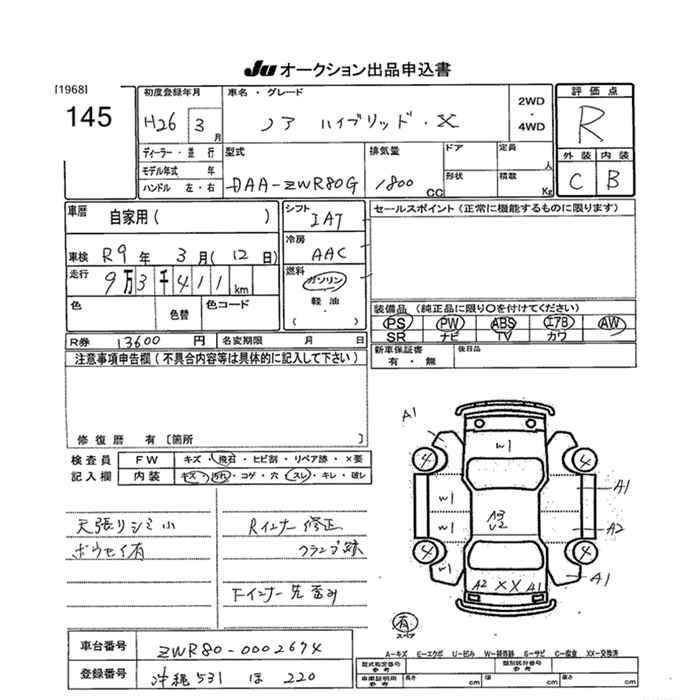 JU オークション出品申込書
[1968]
145
初度登録年月
H26 3 月
車名・グレード
ノア ハイブリッド・X
2WD
・
4WD
評価点
R
外装 内装
C B
ディーラー・並行
モデル年式 年
ハンドル 左・右
型式
DAA-ZWR80G
排気量
1800 CC
ドア
形状
定員
人
積数
Kg
車歴
自家用( )
車検 R9年 3月(12日)
走行 9万3千411km
色
色替
色コード
シフト
IAT
冷房
AAC
燃料
ガソリン
軽油
・
( )
セールスポイント(正常に機能するものに限ります)
装備品(純正品に限り○を付けてください)
PS PW ABS エアB AW
SR ナビ TV カワ
R券 13600 円
名変期限 月 日
新車保証書
有・無
後日品
注意事項申告欄(不具合内容等は具体的に記入して下さい)
修復歴 有 [箇所 ]
検査員
記入欄
FW キズ・飛石・ヒビ割・リペア跡・×要
内装 キズ・汚れ・コゲ・穴・スレ・キレ・破レ
天張リシミ小
ボウセイ有
Rインナー修正
クランプ跡
Fインナー先歪み
A1
W1
4 4
A1
W1
A3
U2
W1
A2
4 4
W1
A2 XX A1
A1
有
スペア
車台番号 ZWR80-0002674
登録番号 沖縄 531 ほ 220
A-キズ E-エクボ U-凹み W-補修跡 S-サビ C-腐食 XX-交換済
型式指定番号
参考
類別区分番号
参考
車庫証明用
参考
長さ cm
幅 cm
高さ cm